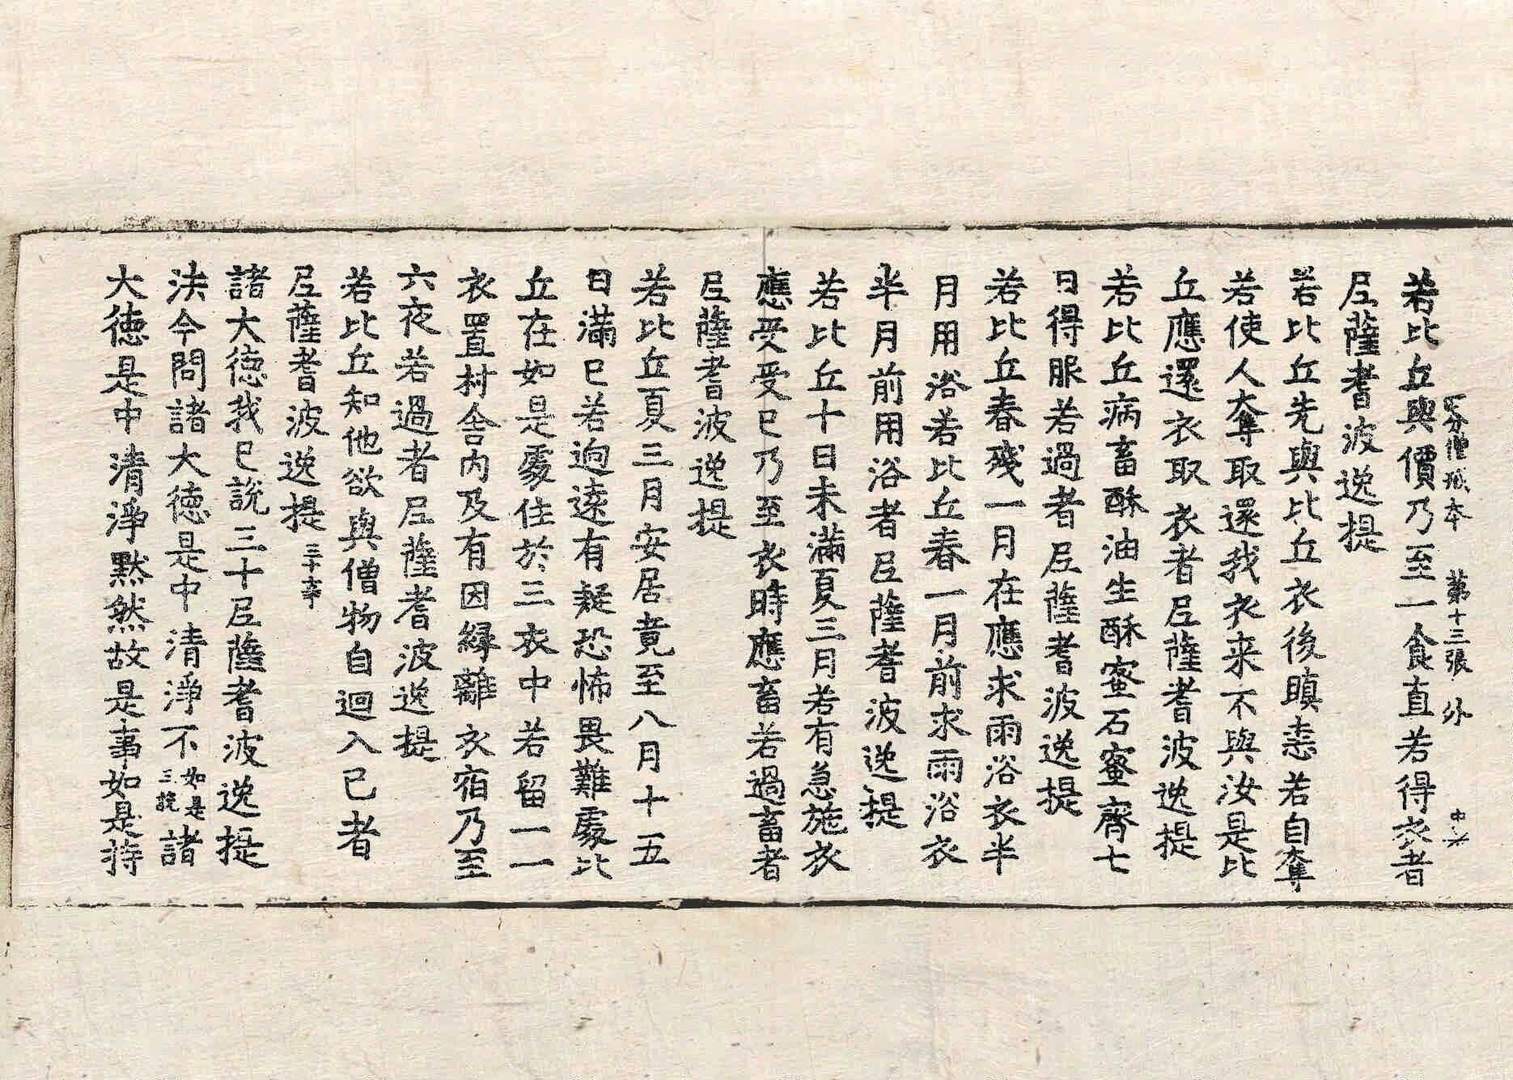 四分僧戒本　第十三張　外
若比丘與價乃至一食直若得衣者
尼薩耆波逸提
若比丘先與比丘衣後瞋恚若自奪
若使人奪取還我衣來不與汝是比
丘應還衣取衣者尼薩耆波逸提
若比丘病畜酥油生酥蜜石蜜齊七
日得服若過者尼薩耆波逸提
若比丘春殘一月在應求雨浴衣半
月用浴若比丘春一月前求雨浴衣
半月前用浴者尼薩耆波逸提
若比丘十日未滿夏三月若有急施衣
應受受已乃至衣時應畜若過畜者
尼薩耆波逸提
若比丘夏三月安居竟至八月十五
日滿已若逈遠有疑恐怖畏難處比
丘在如是處住於三衣中若留一一
衣置村舍內及有因緣離衣宿乃至
六夜若過者尼薩耆波逸提
若比丘知他欲與僧物自迴入已者
尼薩耆波逸提三十竟
諸大德我已說三十尼薩耆波逸提
法今問諸大德是中清淨不如是三說諸
大德是中清淨默然故是事如是持